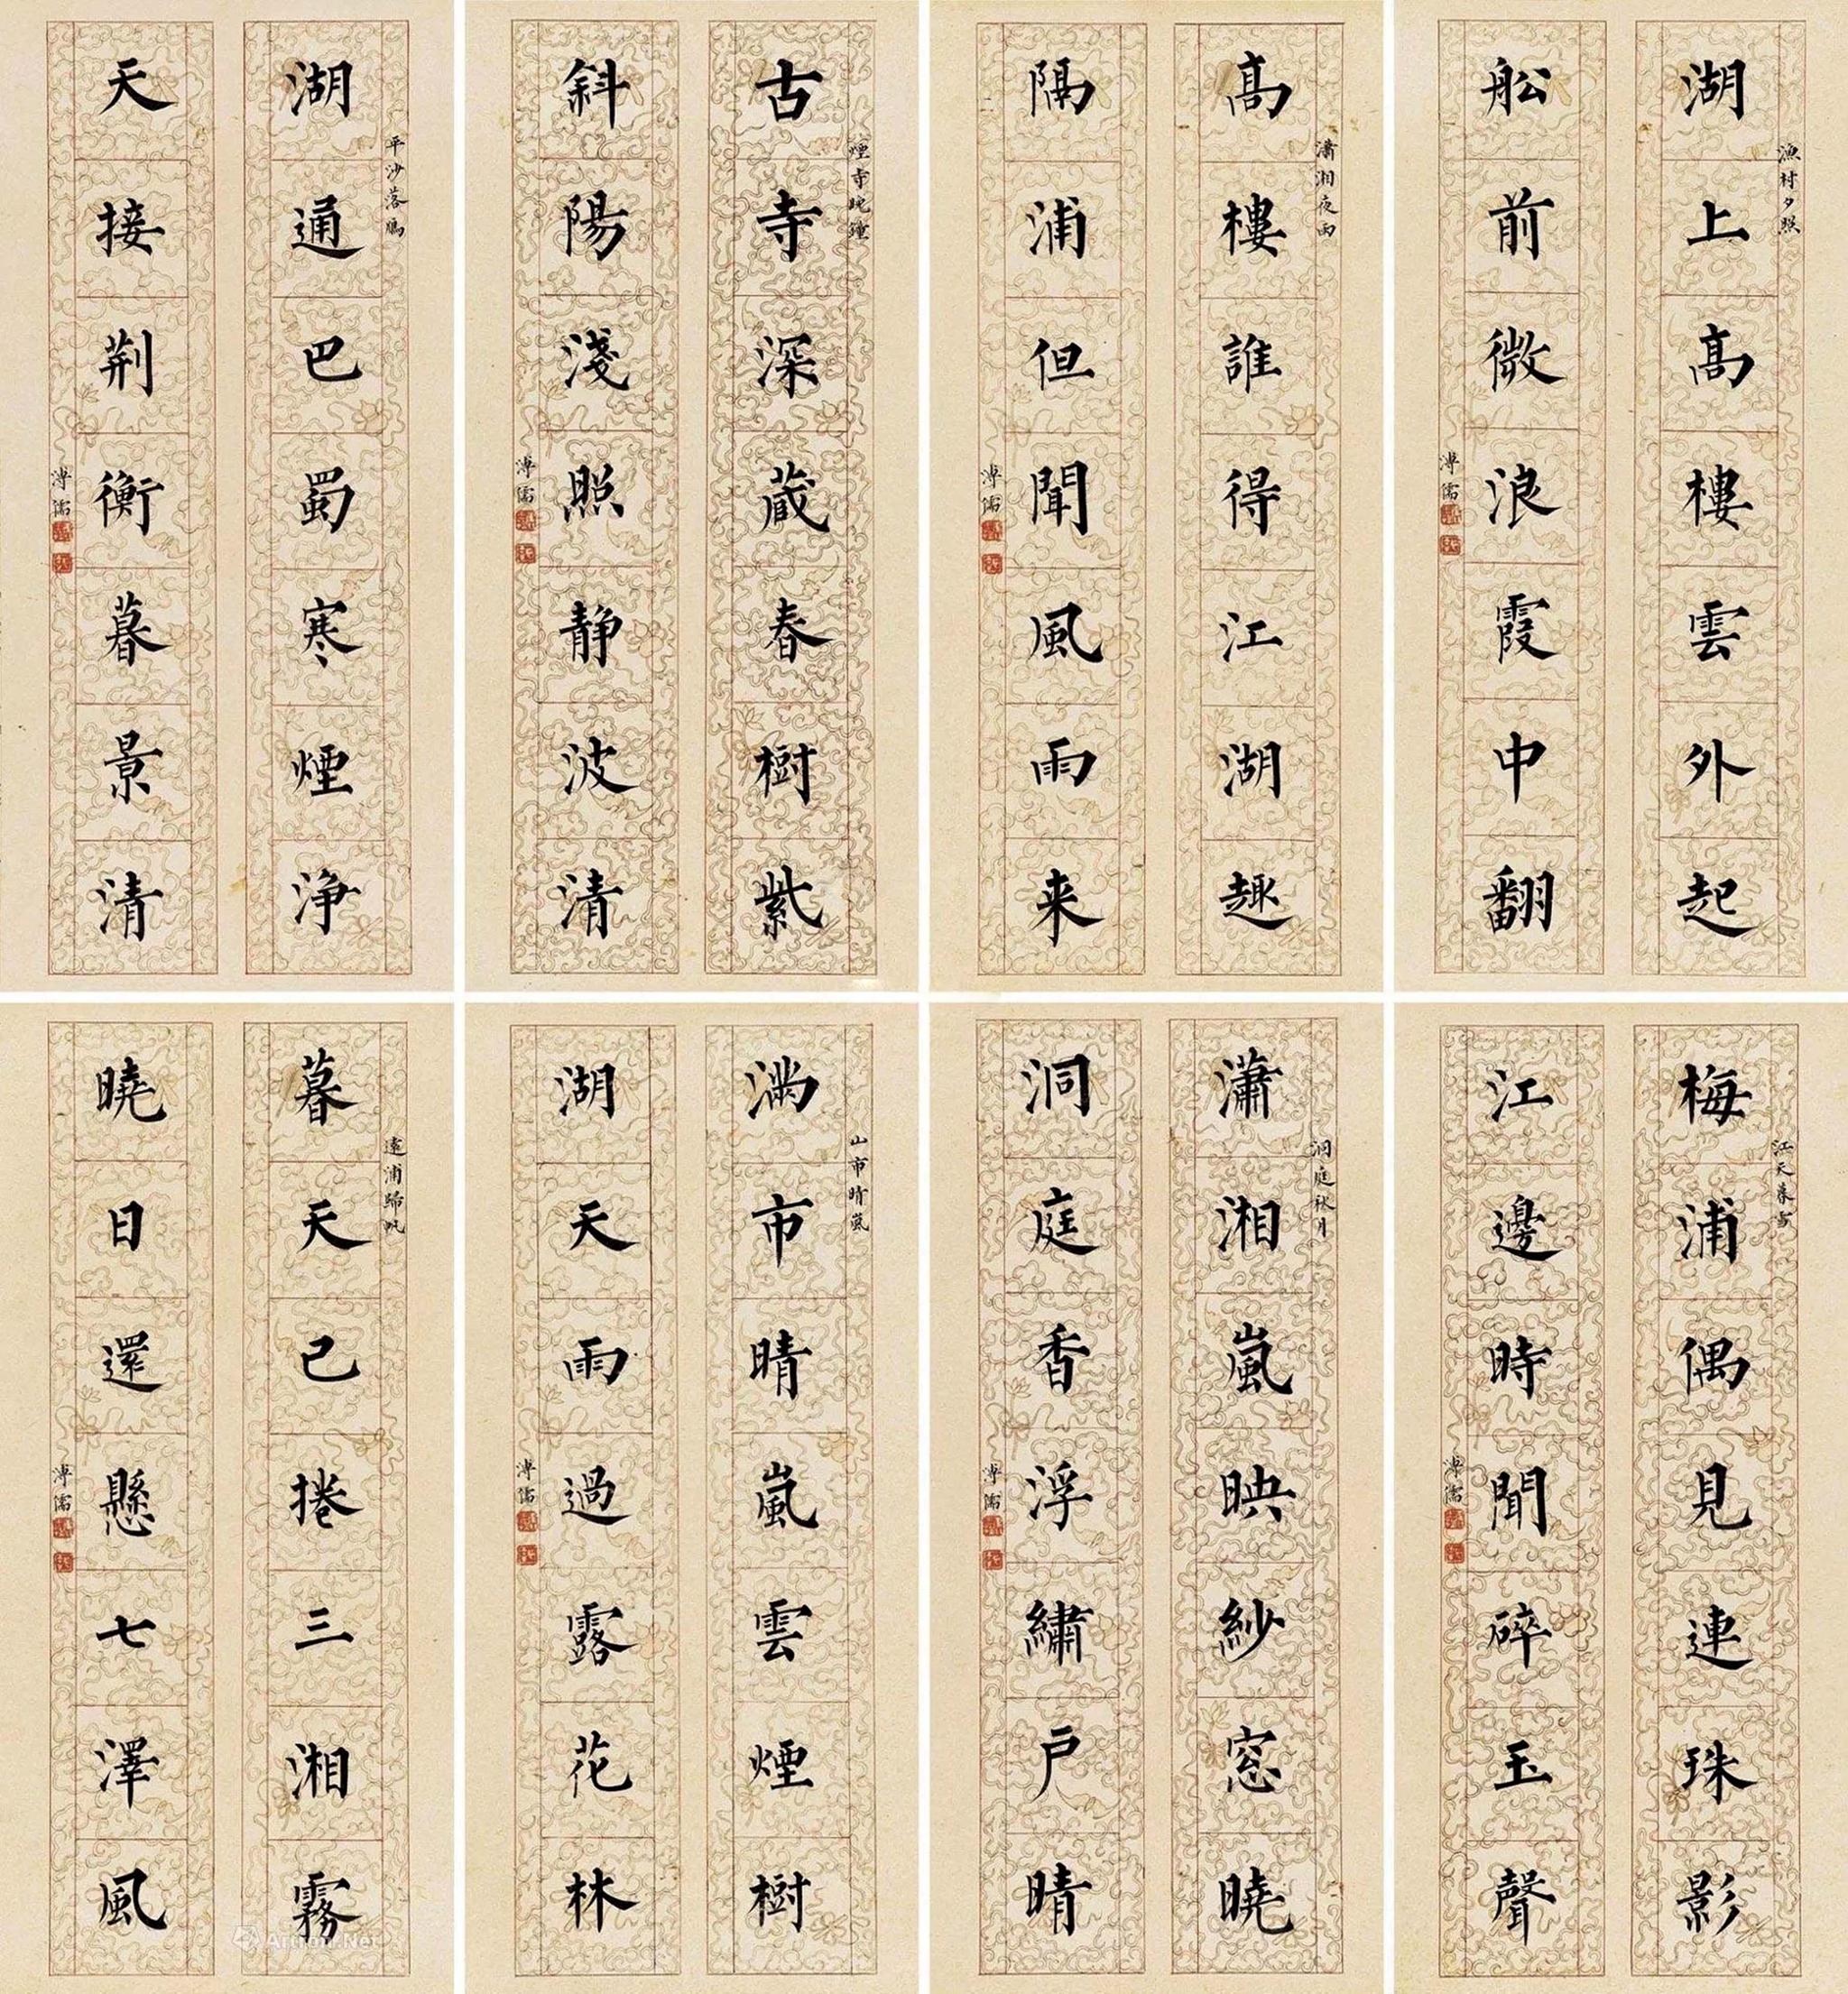 漁村夕照
湖上高樓雲外起
船前微浪霞中翻
溥儒
瀟湘夜雨
高樓誰得江湖趣
隔浦但聞風雨来
溥儒
煙寺晩鐘
古寺深蔵春樹紫
斜陽淺照静波清
溥儒
平沙落鴈
湖通巴蜀寒煙浄
天接荆衡暮景清
溥儒
江天暮雪
梅浦偶見連珠影
江邊時聞碎玉聲
溥儒
洞庭秋月
瀟湘嵐映紗窓曉
洞庭香浮繡戶晴
溥儒
山市晴嵐
満市晴嵐雲煙樹
湖天雨過露花林
溥儒
遠浦歸帆
暮天已捲三湘霧
曉日還懸七澤風
溥儒
Artron.Net